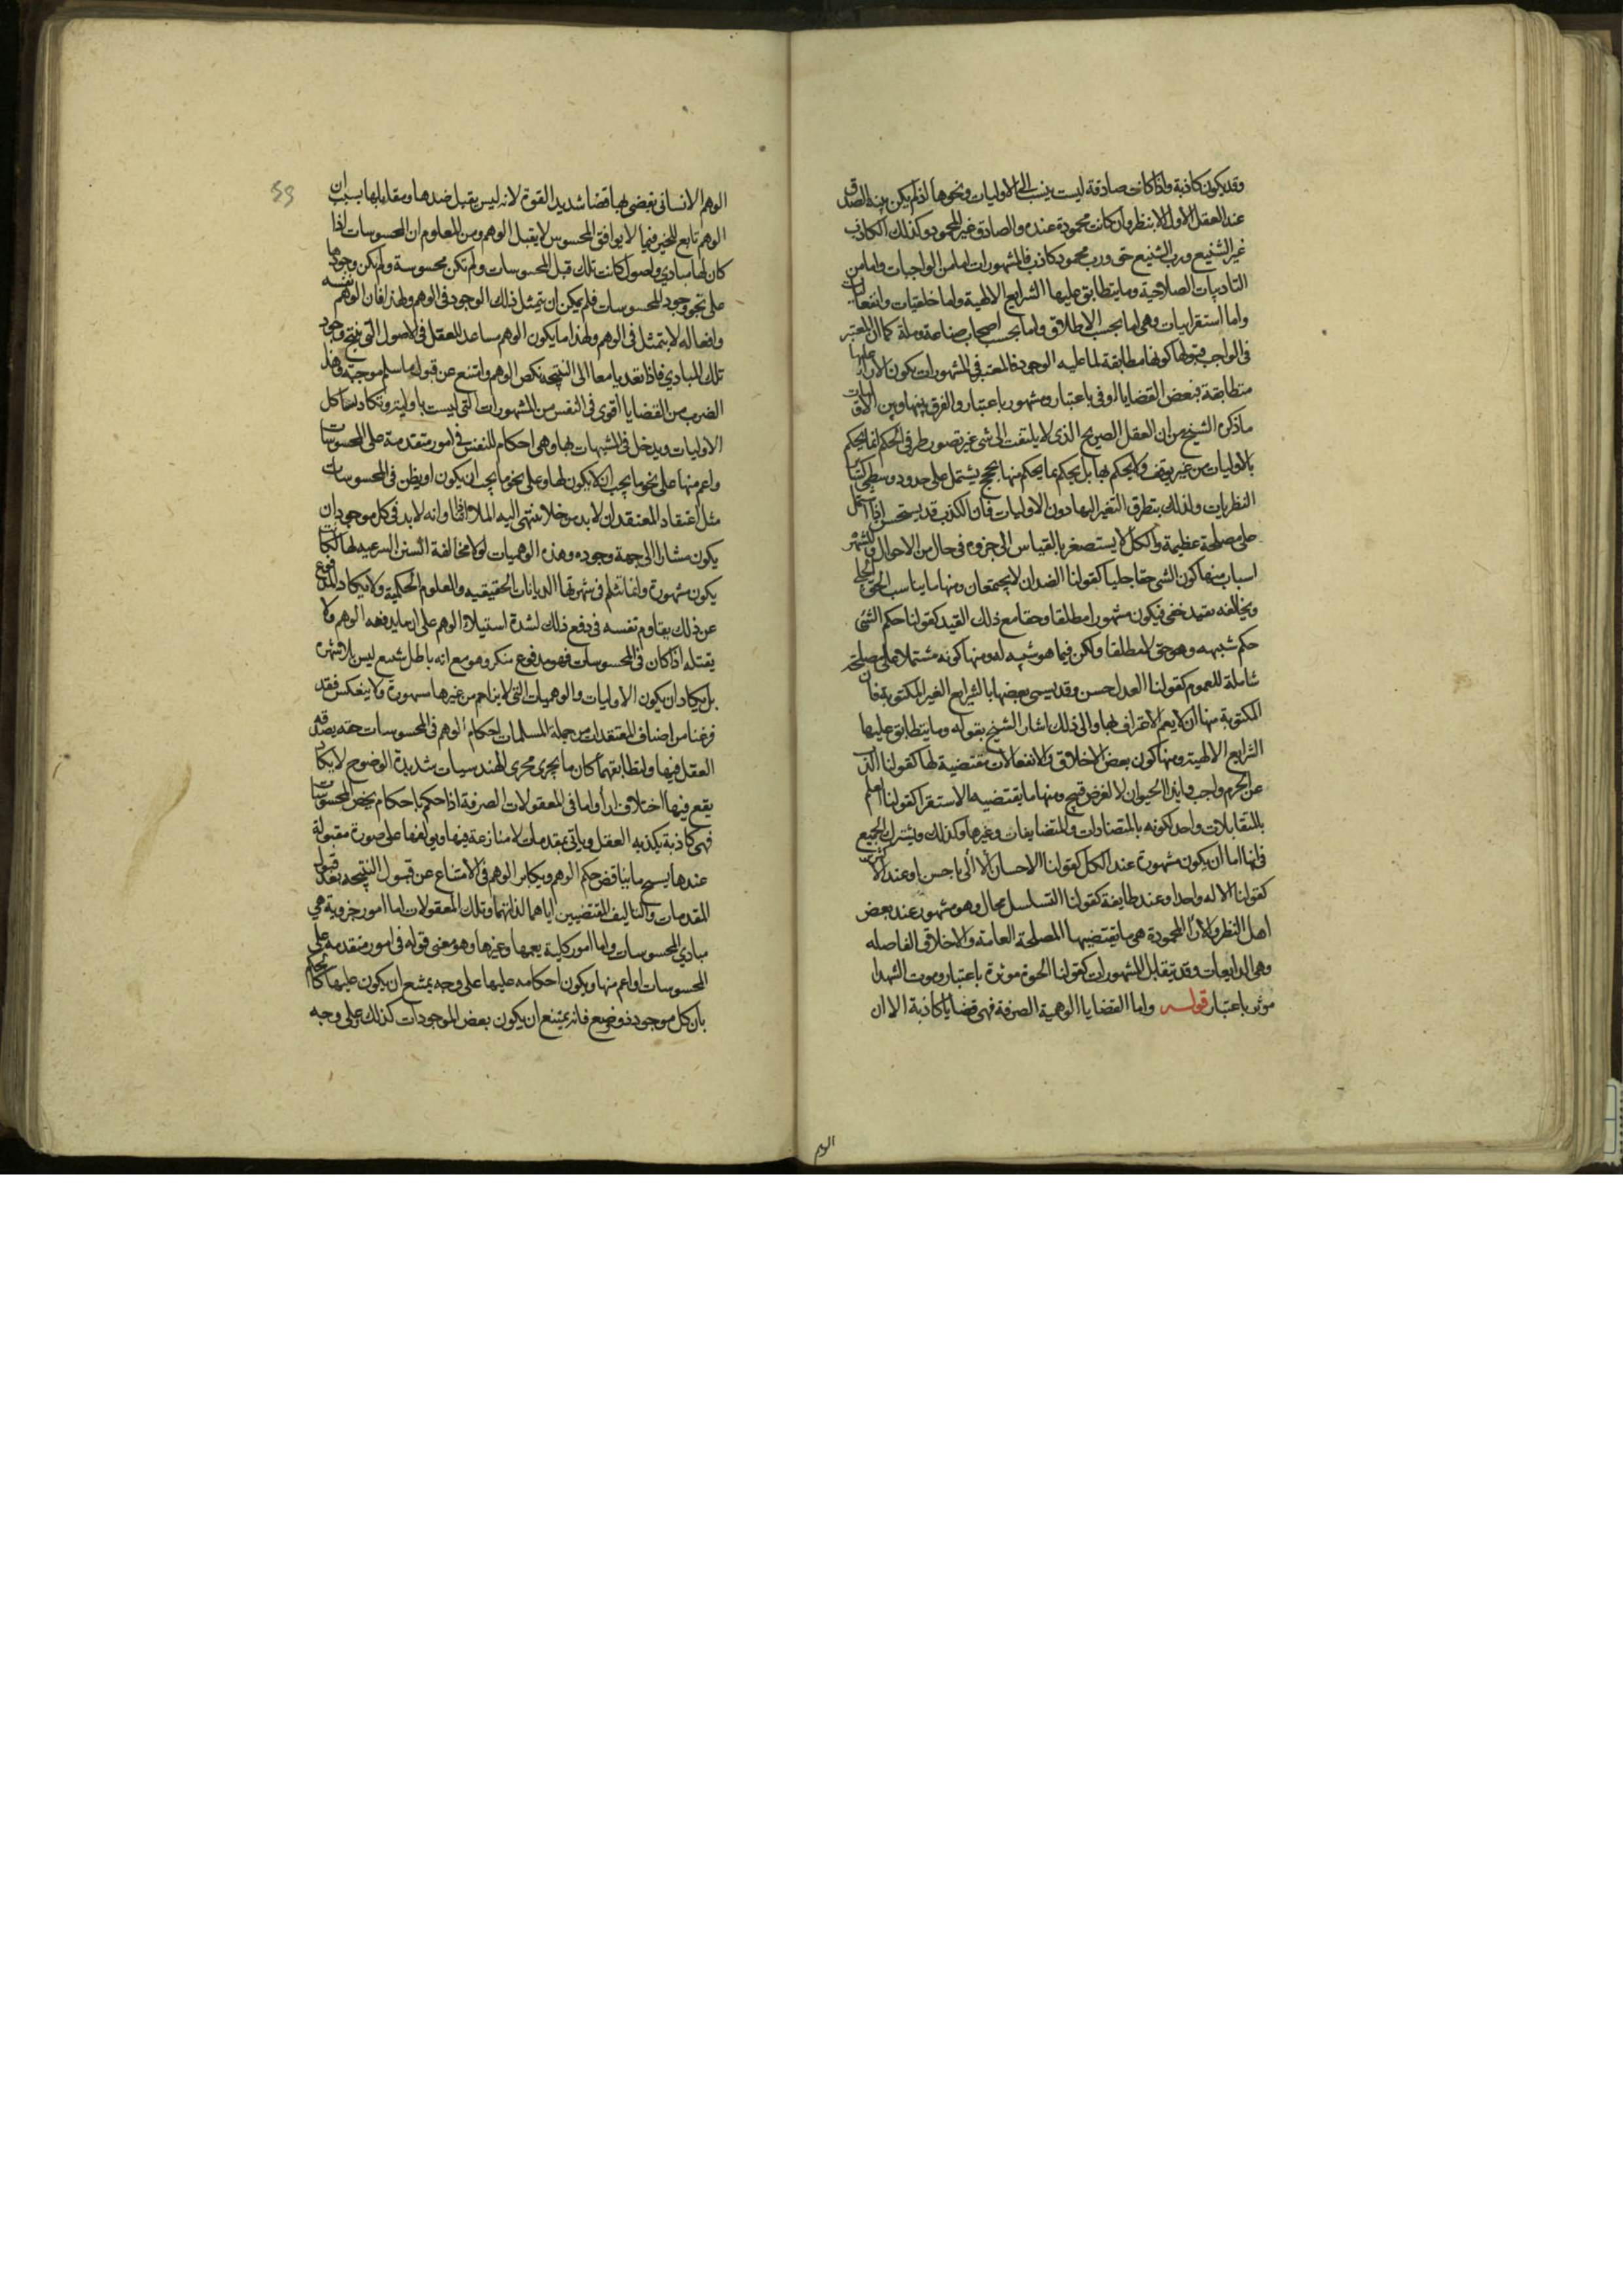 وقد يكون كاذبة واذا كانت صادقة ليست ينسب الى الاوليات ونحوها اذا لم يكن بينة الصدق
عند العقل الاول الا بنظر وان كانت محمودة عنده والصادق غير المحمود وكذلك الكاذب
غير الشنيع ورب شنيع حق ورب محمود كاذب فالمشهورات اما من الواجبات واما من
التاديبات الصلاحية وما يتطابق عليها الشرايع الالهية واما خلقيات وانفعاليات
واما استقرائيات وهى اما بحسب الاطلاق واما بحسب اصحاب صناعة وملة كما ان المعتبر
فى الواجب قبولها كونها مطابقة لما عليه الوجود فالمعتبر فى المشهورات يكون الاراء عليها
متطابقة فبعض القضايا اولى باعتبار ومشهور باعتبار والفرق بينها وبين الاوليات
ما ذكره الشيخ من ان العقل الصريح الذى لا يلتفت الى شى غير تصور طرفى الحكم انما يحكم
بالاوليات من غير توقف ولا يحكم بها بل يحكم بما يحكم منها بحجج يشتمل على حدود وسطى كسائر
النظريات ولذلك يتطرق التغير اليها دون الاوليات فان الكذب قد يستحسن اذا اشتمل
على مصلحة عظيمة والكل لا يستصغر بالقياس الى جزوه فى حال من الاحوال وللشهرة
اسباب منها كون الشى حقا جليا كقولنا الضدان لا يجتمعان ومنها ما يناسب الحق الجلى
ويخالفه بقيد خفى فيكون مشهورا مطلقا وحقا مع ذلك القيد كقولنا حكم الشى
حكم شبيهه وهو حق لا مطلقا ولكن فيما هو شبيه له ومنها كونه مشتملا على مصلحة
شاملة للعموم كقولنا العدل حسن وقد يسمى بعضها بالشرايع الغير المكتوبة فان
المكتوبة منها ان لا يعم الاعتراف بها والى ذلك اشار الشيخ بقوله وما يتطابق عليها
الشرايع الالهية ومنها كون بعض الاخلاق والانفعالات مقتضية لها كقولنا الذب
عن الحرم واجب وايذا الحيوان لا لغرض قبيح ومنها ما يقتضيه الاستقرا كقولنا العلم
بالمتقابلات واحد لكونه بالمتضادات والمتضايفات وغيرها وكذلك ويشترك الجميع
فى انها اما ان يكون مشهورة عند الكل كقولنا الاحسان الى الاباء حسن او عند الاكثرين
كقولنا الاله واحد او عند طايفة كقولنا التسلسل محال وهو مشهور عند بعض
اهل النظر والاراء المحمودة هى ما يقتضيها المصلحة العامة والاخلاق الفاضله
وهى الذايعات وقد يتقابل المشهورات كقولنا الحيوة موثرة باعتبار وموت الشهدا
موثر باعتبار قوله واما القضايا الوهمية الصرفة فهى قضايا كاذبة الا ان
الوهم
الوهم الانسانى يقضى بها قضا شديد القوة لانه ليس يقبل ضدها ومقابلها بسبب ان
الوهم تابع للحس فما لا يوافق المحسوس لا يقبل الوهم ومن المعلوم ان المحسوسات اذا
كان لها مبادى واصول كانت تلك قبل المحسوسات ولم تكن محسوسة ولم يكن وجودها
على نحو وجود المحسوسات فلم يمكن ان يتمثل ذلك الوجود فى الوهم ولهذا فان الوهم نفسه
وافعاله لا يتمثل فى الوهم ولهذا ما يكون الوهم مساعدا للعقل فى الاصول التى ينتج وجود
تلك المبادى فاذا تعديا معا الى النتيجة نكص الوهم وامتنع عن قبول ما سلم موجبه وهذا
الضرب من القضايا اقوى فى النفس من المشهورات التى ليست باولية وتكاد تشاكل
الاوليات ويدخل فى المشبهات بها وهى احكام للنفس فى امور متقدمة على المحسوسات
واعم منها على نحو ما يجب ان لا يكون لها وعلى نحو ما يجب ان يكون او يظن فى المحسوسات
مثل اعتقاد المعتقد ان لا بد من خلا ينتهى اليه الملا اذا تناهى وانه لا بد فى كل موجود ان
يكون مشارا الى جهة وجوده وهذه الوهميات لولا مخالفة السنن الشرعية لها لكانت
يكون مشهورة وانما تثلم فى شهرتها الديانات الحقيقيه والعلوم الحكمية ولا يكاد المدفوع
عن ذلك يقاوم نفسه فى دفع ذلك لشدة استيلا الوهم على ان ما يدفعه الوهم ولا
يقبله اذا كان فى المحسوسات فهو مدفوع منكر وهو مع انه باطل شنيع ليس بلا شهرة
بل يكاد ان يكون الاوليات والوهميات التى لا تزاحم من غيرها مشهورة ولا ينعكس فقد
فرغنا من اصناف المعتقدات من جملة المسلمات احكام الوهم فى المحسوسات حقه يصدقه
العقل فيها ولتطابقهما كان ما يجرى مجرى الهندسيات شديدة الوضوح لا يكاد
يقع فيها اختلاف اراء واما فى المعقولات الصرفة اذا حكم باحكام يخص المحسوسات
فهى كاذبة يكذبه العقل وياتى بمقدمات لا منازعة فيها ويولفها على صورة مقبولة
عندها ينتج ما يناقض حكم الوهم ويكابر الوهم فى الامتناع عن قبول النتيجه بعد قبول
المقدمات والتاليف المقتضيين اياهما لذاتهما وتلك المعقولات اما امور جزوية هى
مبادى المحسوسات واما امور كلية يعمها وغيرها وهو معنى قوله فى امور متقدمة على
المحسوسات او اعم منها ويكون احكامه عليها على وجه يمتنع ان يكون عليها كالحكم
بان كل موجود ذو وضع فانه يمتنع ان يكون بعض الموجودات كذلك وعلى وجه